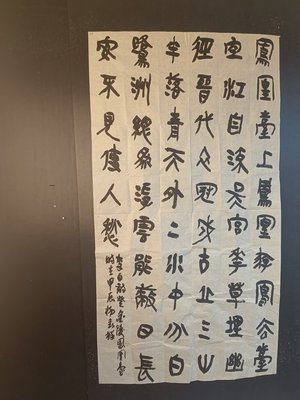 鳳凰臺上鳳凰遊鳳去臺
空江自流吳宮花草埋幽
徑晉代衣冠成古丘三山
半落青天外二水中分白
鷺洲總為浮雲能蔽日長
安不見使人愁
李白詩登金陵鳳凰臺
甲辰